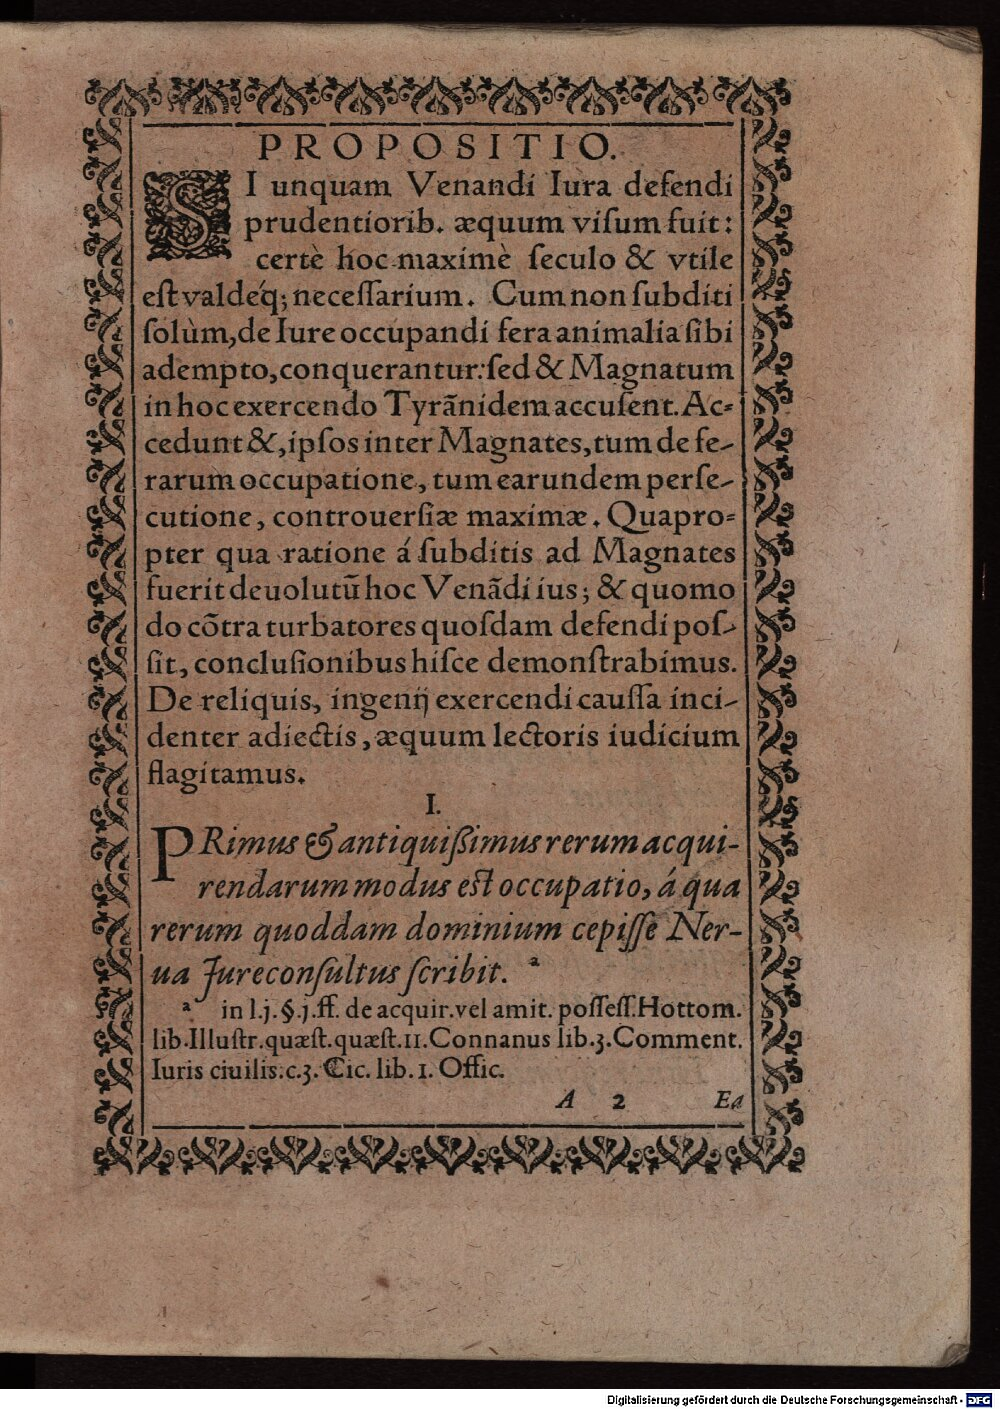 PROPOSITIO.
SI unquam Venandi Iura defendi
prudentiorib. æquum viſum fuit:
certè hoc maximè ſeculo & vtile
eſt valdeq́; neceſſarium. Cum non ſubditi
ſolùm, de Iure occupandi fera animalia ſibi
adempto, conquerantur: ſed & Magnatum
in hoc exercendo Tyrãnidem accuſent. Ac-
cedunt &, ipſos inter Magnates, tum de fe-
rarum occupatione, tum earundem perſe-
cutione, controuerſiæ maximæ. Quapro-
pter qua ratione á ſubditis ad Magnates
fuerit deuolutũ hoc Venãdi ius; & quomo
do cõtra turbatores quoſdam defendi poſ-
ſit, concluſionibus hiſce demonſtrabimus.
De reliquis, ingenij exercendi cauſſa inci-
denter adiectis, æquum lectoris iudicium
flagitamus.
I.
PRimus & antiquiſsimus rerum acqui-
rendarum modus eſt occupatio, á qua
rerum quoddam dominium cepiſſe Ner-
ua Jureconſultus ſcribit. ᵃ
ᵃ in l.j.§.j.ff. de acquir. vel amit. poſſeſſ. Hottom.
lib. Illuſtr. quæſt. quæſt. 11. Connanus lib. 3. Comment.
Iuris ciuilis. c. 3. Cic. lib. 1. Offic.
A 2 Ea
Digitalisierung gefördert durch die Deutsche Forschungsgemeinschaft - DFG